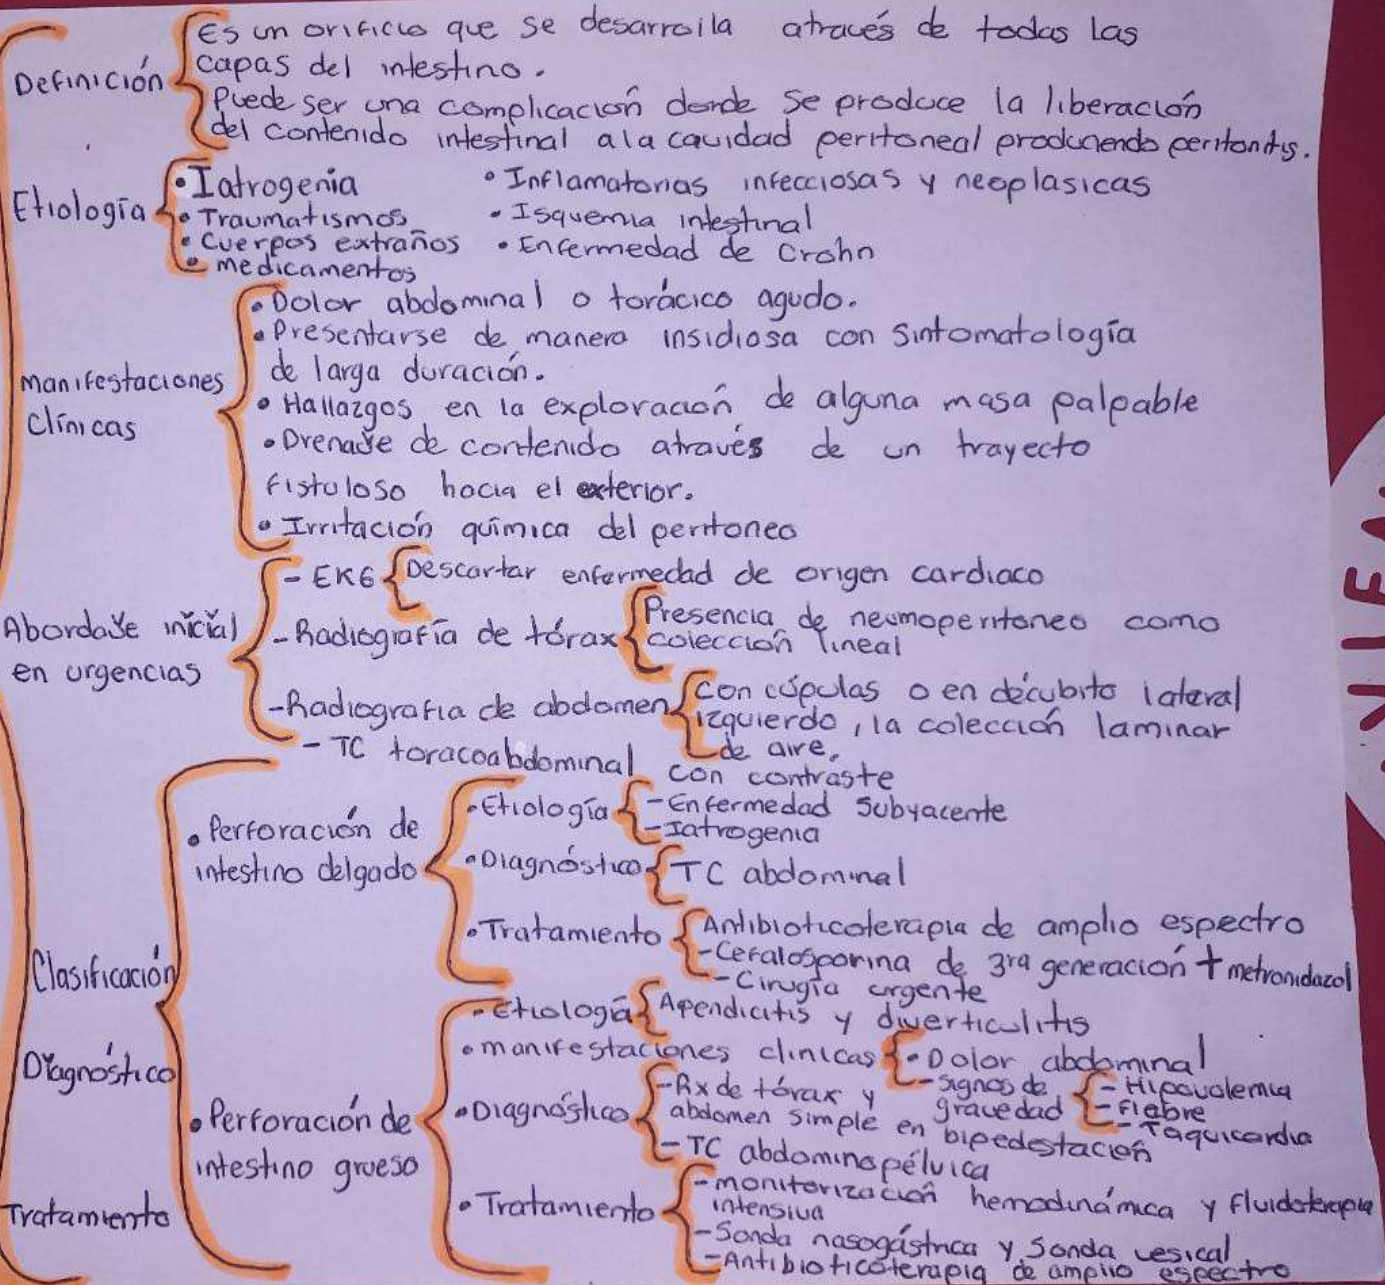 Definición
Es un orificio que se desarrolla através de todas las
capas del intestino.
Puede ser una complicación donde se produce la liberación
del contenido intestinal a la cavidad peritoneal produciendo peritonitis.
Etiología
• Iatrogenia
• Traumatismos
• Cuerpos extraños
• medicamentos
• Inflamatorias infecciosas y neoplasicas
• Isquemia intestinal
• Enfermedad de Crohn
Manifestaciones
Clínicas
• Dolor abdominal o torácico agudo.
• Presentarse de manera insidiosa con sintomatología
de larga duración.
• Hallazgos en la exploración de alguna masa palpable
• Drenaje de contenido através de un trayecto
fistuloso hacia el exterior.
• Irritación química del peritoneo
Abordaje inicial
en urgencias
- EKG
Descartar enfermedad de origen cardiaco
- Radiografía de tórax
Presencia de neumoperitoneo como
colección lineal
- Radiografia de abdomen
Con cúpulas o en decúbito lateral
izquierdo, la colección laminar
de aire.
- TC toracoabdominal con contraste
Clasificación
Diagnóstico
Tratamiento
• Perforación de
intestino delgado
• Etiología
- Enfermedad subyacente
- Iatrogenia
• Diagnóstico
TC abdominal
• Tratamiento
Antibioticoterapia de amplio espectro
- Cefalosporina de 3ra generación + metronidazol
- Cirugía urgente
• Perforación de
intestino grueso
• Etiología
Apendicitis y diverticulitis
• manifestaciones clinicas
• Dolor abdominal
- signos de
gravedad
- Hipovolemia
- Fiebre
- Taquicardia
• Diagnóstico
- Rx de tórax y
abdomen simple en bipedestación
- TC abdominopélvica
• Tratamiento
- monitorización hemodinámica y fluidoterapia
intensiva
- Sonda nasogástrica y sonda vesical
- Antibioticoterapia de amplio espectro